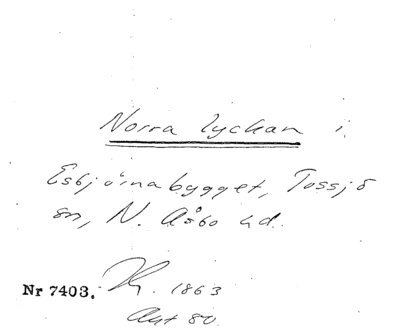 Norra lyckan i
Esbjörnabygget, Tossjö
sn, N. Åsbo hd.
Nr 7403. 1863
Akt 80